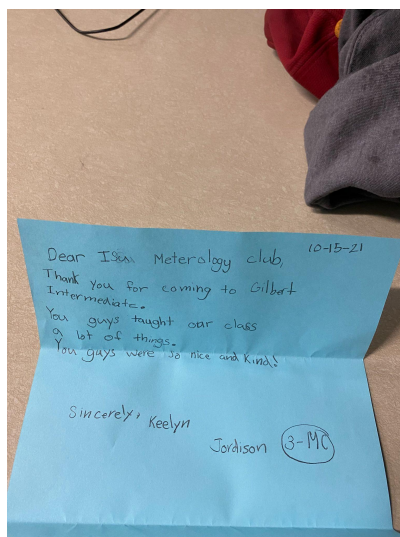 10-15-21
Dear ISU Meterology club,
Thank you for coming to Gilbert
Intermediate.
You guys taught our class
a lot of things.
You guys were so nice and kind!
Sincerely, Keelyn
Jordison 3-MC